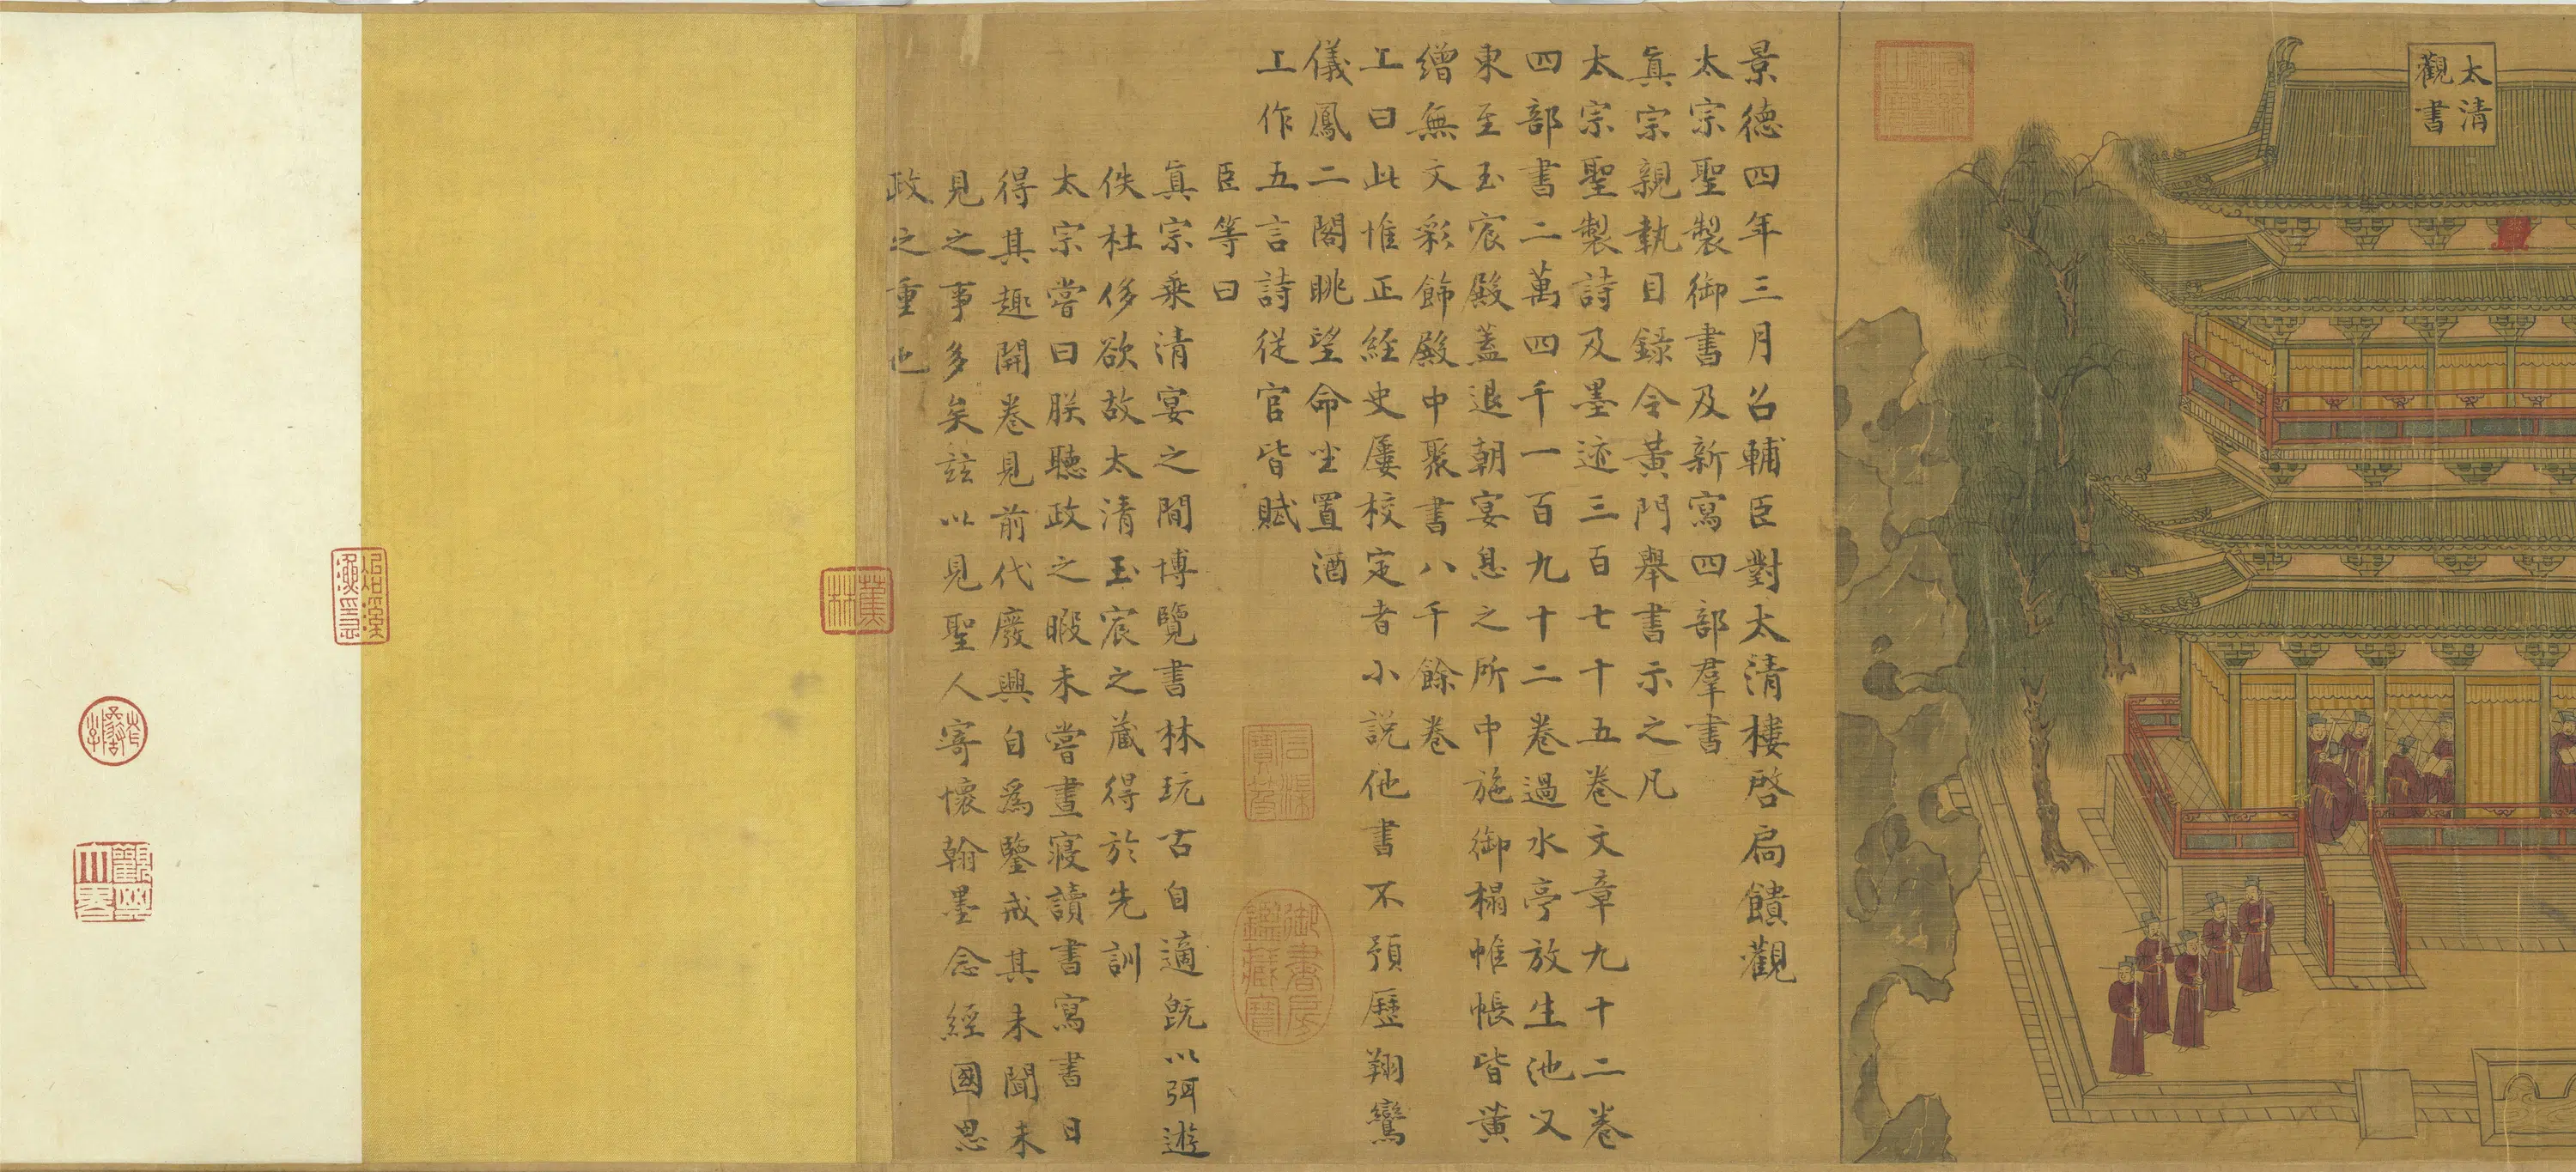 太清
觀書
景德四年三月召輔臣對太清樓啓扃饋觀
太宗聖製御書及新寫四部羣書
真宗親執目錄令黃門舉書示之凡
太宗聖製詩及墨迹三百七十五卷文章九十二卷
四部書二萬四千一百九十二卷過水亭放生池又
東至玉宸殿蓋退朝宴息之所中施御榻帷帳皆黃
繒無文彩飾殿中聚書八千餘卷
上曰此惟正經史屢校定者小說他書不預歷翔鸞
儀鳳二閣眺望命坐置酒
上作五言詩從官皆賦
臣等曰
真宗乘清宴之間博覽書林玩古自適旣以弭遊
佚杜侈欲故太清玉宸之藏得於先訓
太宗嘗曰朕聽政之暇未嘗晝寢讀書寫書日
得其趣開卷見前代廢興自為鑒戒其未聞未
見之事多矣茲以見聖人寄懷翰墨念經國思
政之重也
御書房
鑑藏寶
蕉
林